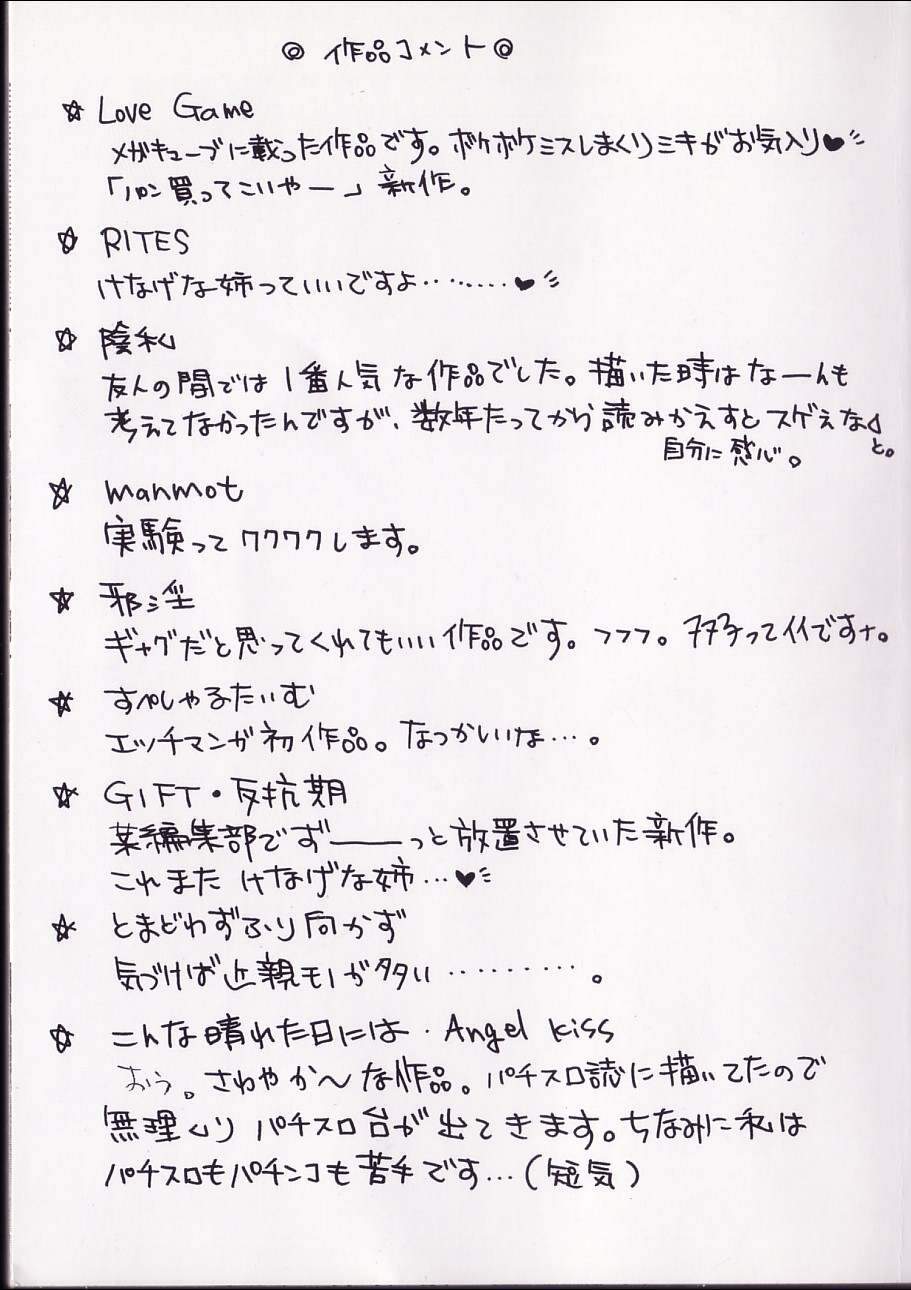 ◎ 作品コメント◎
☆ Love Game
メガキューブに載った作品です。ボケボケミスしまくりミキがお気入り♥
「パン買ってこいやー」新作。
☆ RITES
けなげな姉っていいですよ‥‥‥‥♥
☆ 陰私
友人の間では1番人気な作品でした。描いた時はなーんも
考えてなかったんですが、数年たってから読みかえすとスゲぇな
と。
自分に感心。
☆ manmot
実験ってワクワクします。
☆ 邪淫
ギャグだと思ってくれてもいい作品です。フフフ。って
イイですナ。
☆ すぺしゃるたいむ
エッチマンガ初作品。なつかしいな…。
☆ GIFT・反抗期
某編集部でず――っと放置させていた新作。
これまた けなげな姉…♥
☆ とまどわずふり向かず
気づけば近親モノが多い ‥‥‥‥‥。
☆ こんな晴れた日には・Angel Kiss
おう。さわやか〜な作品。パチスロ誌に描いてたので
無理くりパチスロ台が出てきます。ちなみに私は
パチスロもパチンコも苦手です…(短気)